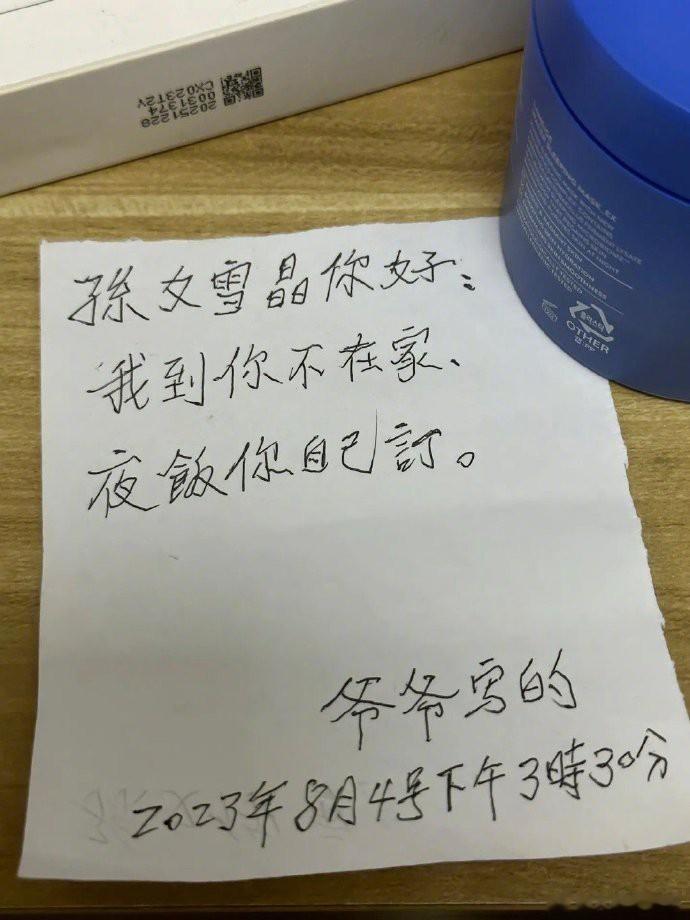 20251228
0031374
CX023T2V
MASK_EX
플라스틱
OTHER
孫女雪晶你好：
我到你不在家、
夜飯你自己訂。
爷爷写的
2023年8月4号下午3時30分